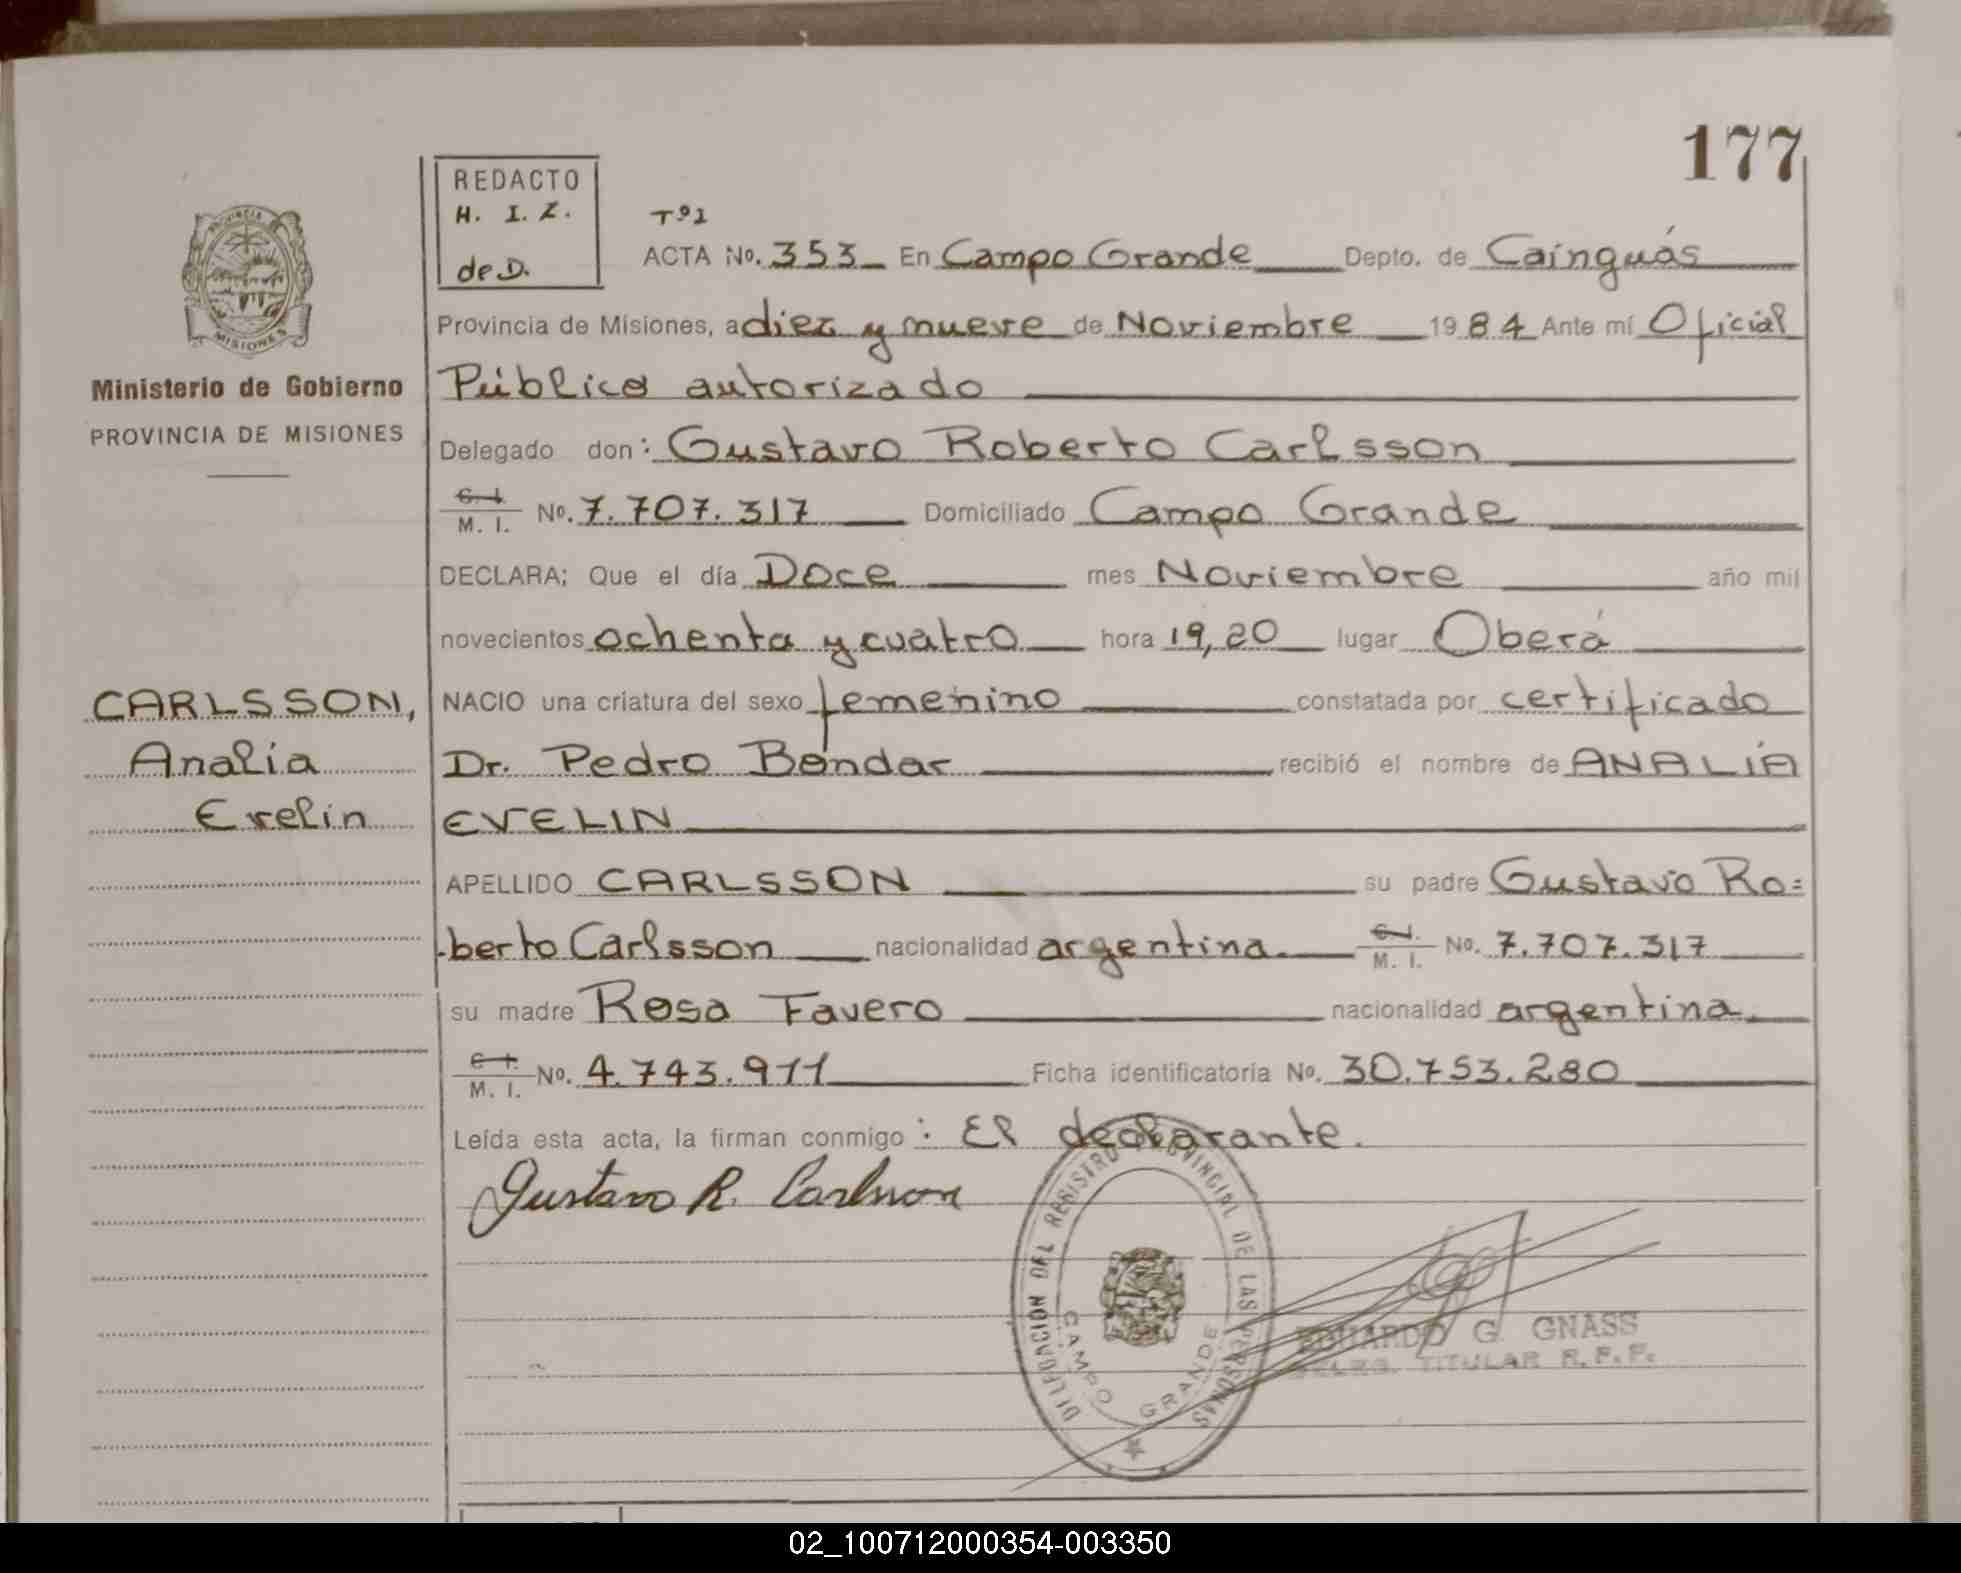 177
REDACTO
H. I. Z.
de D.
Tº1
ACTA No. 353 En Campo Grande Depto. de Cainguás
Provincia de Misiones, a diez y nueve de Noviembre 1984 Ante mí Oficial
Público autorizado
Delegado don: Gustavo Roberto Carlsson
C. I. M. I. No. 7.707.317 Domiciliado Campo Grande
DECLARA; Que el día Doce mes Noviembre año mil
novecientos ochenta y cuatro hora 19,20 lugar Oberá
NACIO una criatura del sexo femenino constatada por certificado
Dr. Pedro Bondar recibió el nombre de ANALÍA
EVELIN
APELLIDO CARLSSON su padre Gustavo Ro=
berto Carlsson nacionalidad argentina. C. I. M. I. No. 7.707.317
su madre Rosa Favero nacionalidad argentina.
C. I. M. I. No. 4.743.911 Ficha identificatoria No. 30.753.280
Leída esta acta, la firman conmigo: El declarante.
Gustavo R. Carlsson
PROVINCIA
MISIONES
Ministerio de Gobierno
PROVINCIA DE MISIONES
CARLSSON,
Analía
Evelin
DELEGACION DEL REGISTRO PROVINCIAL DE LAS PERSONAS
CAMPO GRANDE
EDUARDO G. GNASS
DELEG. TITULAR R. P. P.
02_100712000354-003350